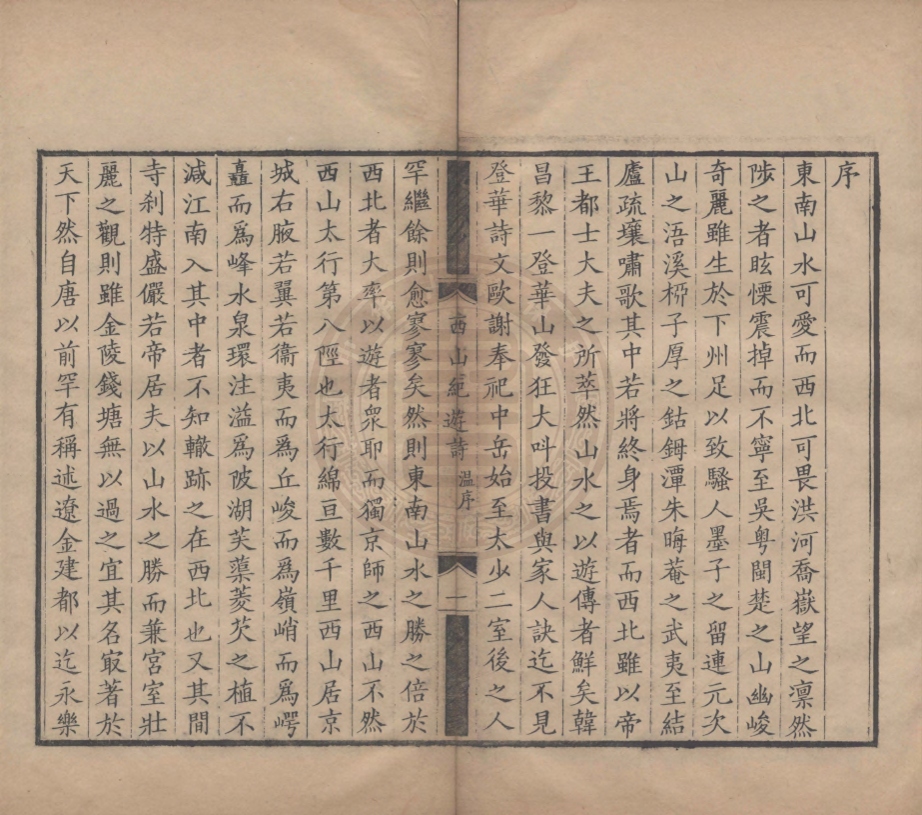 序
東南山水可愛而西北可畏洪河喬嶽望之凛然
陟之者眩慄震掉而不寧至吳粤閩楚之山幽峻
奇麗雖生於下州足以致騷人墨子之留連元次
山之浯溪栁子厚之鈷鉧潭朱晦菴之武夷至結
廬疏壤嘯歌其中若將終身焉者而西北雖以帝
王都士大夫之所萃然山水之以遊傳者鮮矣韓
昌黎一登華山發狂大叫投書與家人訣迄不見
登華詩文歐謝奉祀中岳始至太少二室後之人
西山紀遊詩 溫序 一
罕繼餘則愈寥寥矣然則東南山水之勝之倍於
西北者大率以遊者衆耶而獨京師之西山不然
西山太行第八陘也太行綿亘數千里西山居京
城右腋若翼若衞夷而爲丘峻而爲嶺峭而爲崿
矗而爲峰水泉環注溢爲陂湖芙蕖菱芡之植不
减江南入其中者不知轍跡之在西北也又其間
寺刹特盛儼若帝居夫以山水之勝而兼宮室壯
麗之觀則雖金陵錢塘無以過之宜其名㝡著於
天下然自唐以前罕有稱述遼金建都以迄永樂